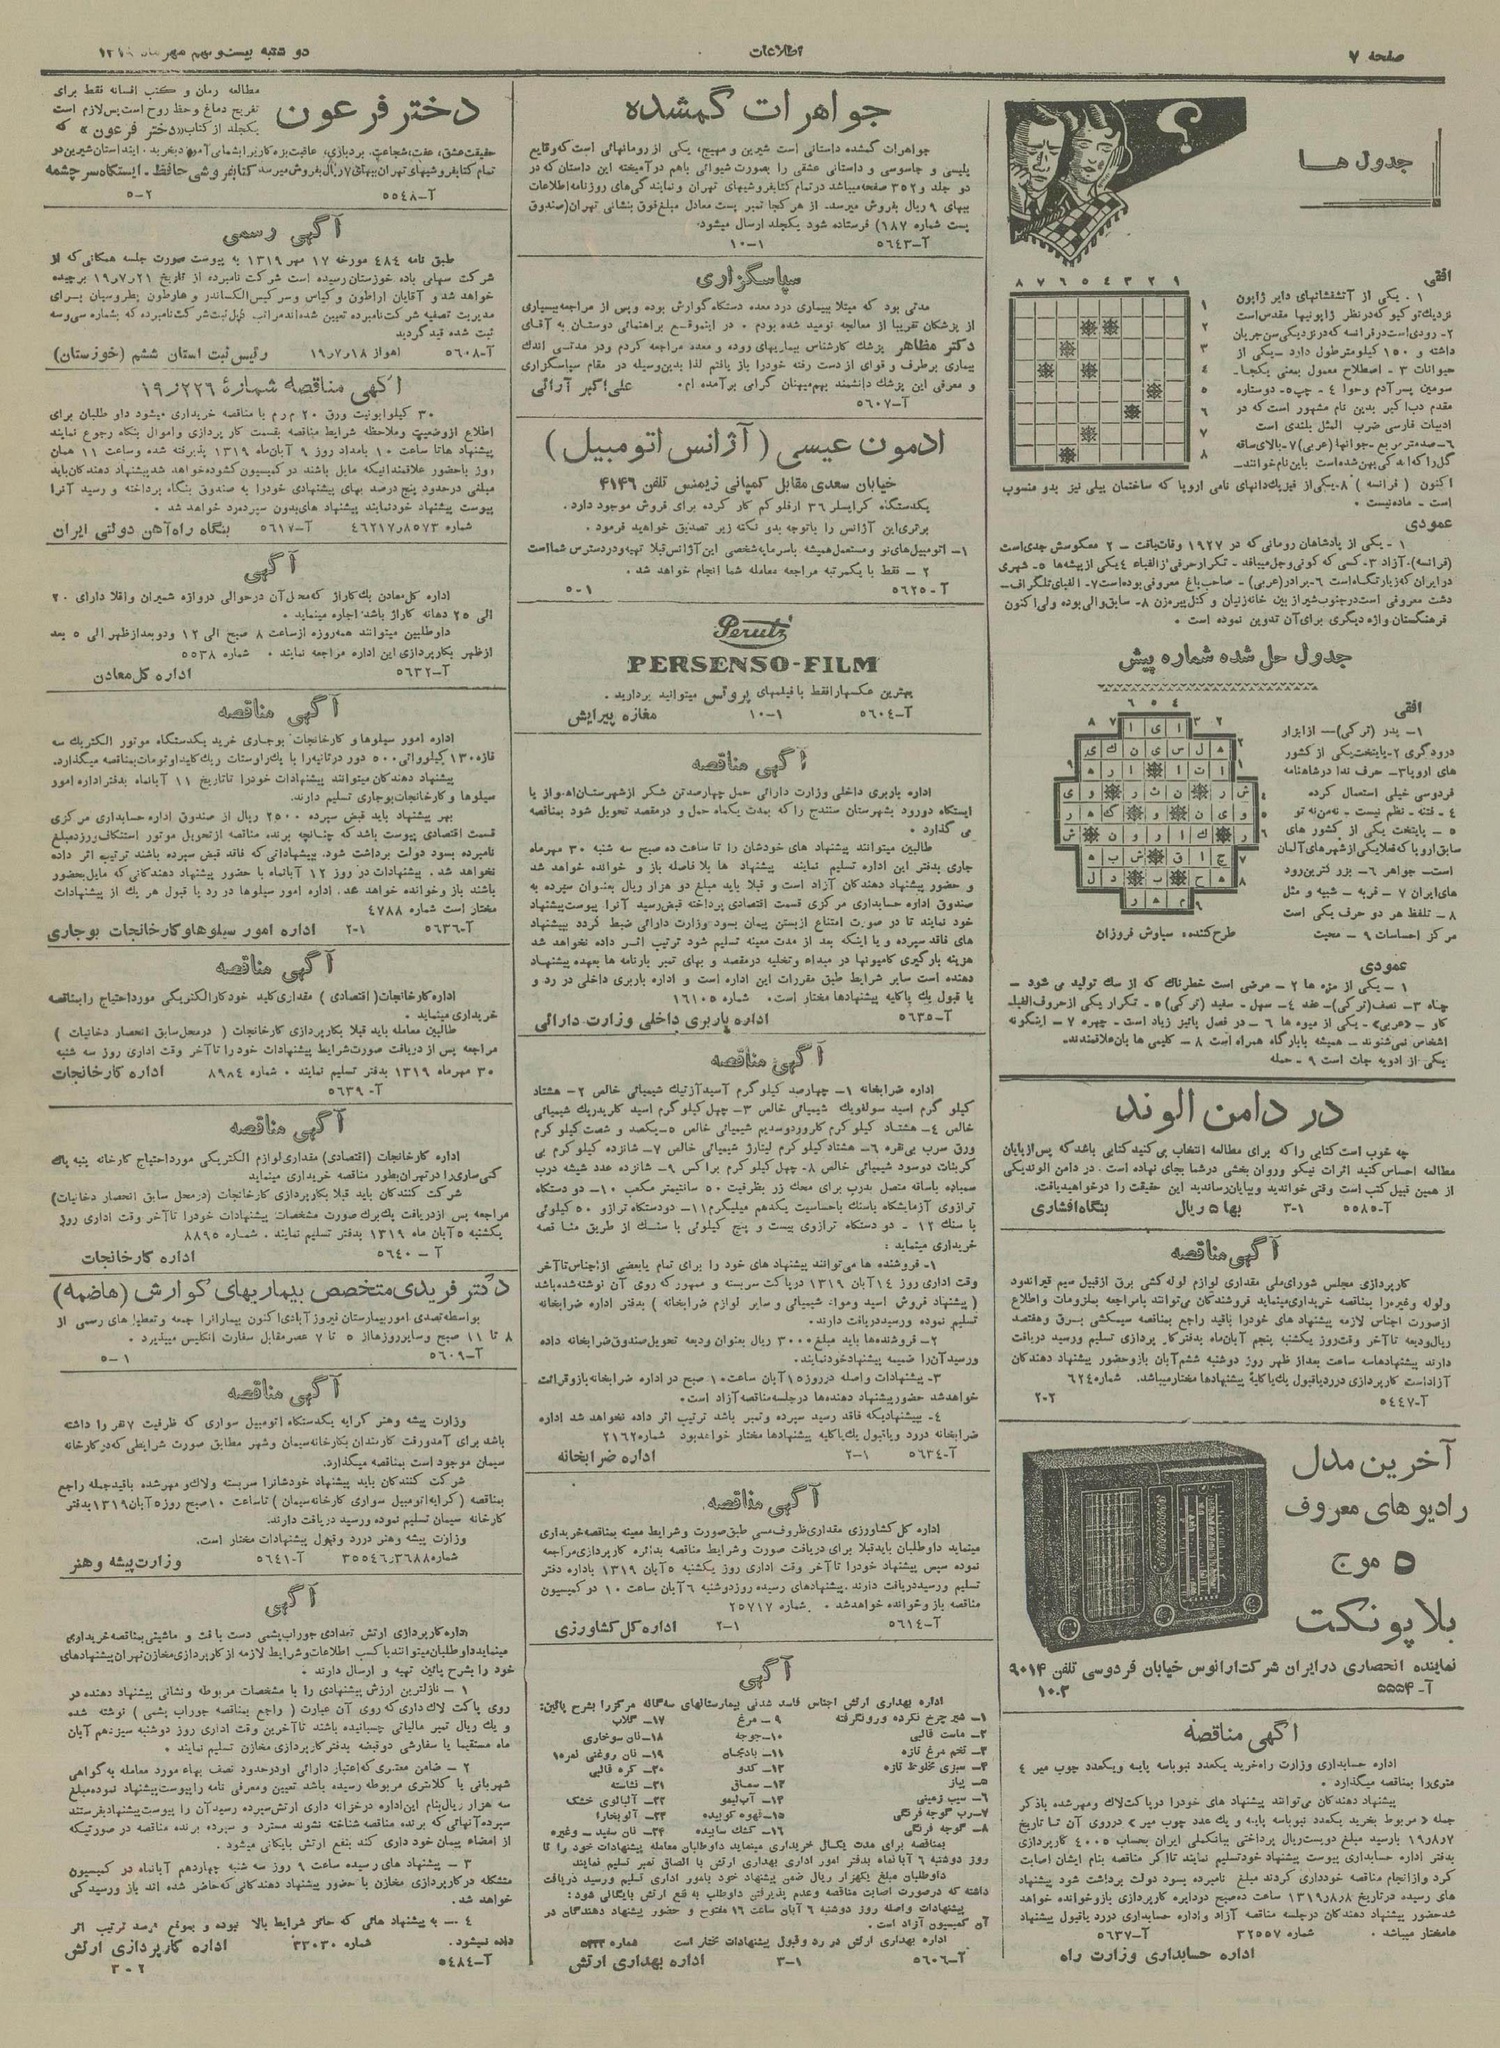 صفحه ۷
اطلاعات
دو شنبه بیست و نهم مهر ماه ۱۳۱۹
جدول ها
افقی
۱ - یکی از آتشفشانهای دایر ژاپون
نزدیک توکیو که در نظر ژاپونیها مقدس است
۲- رودی است در فرانسه که در نزدیکی سن جریان
داشته و ۱۵۰ کیلومتر طول دارد - یکی از
حیوانات ۳ - اصطلاح معمول بمعنی یکجا-
سومین پسر آدم و حوا ۴ - چپ ۵- دو ستاره
مقدم دب اکبر بدین نام مشهور است که در
ادبیات فارسی ضرب المثل بلندی است
۶- صدمتر مربع - جوانها (عربی) ۷- بالای ساقه
گل را که اندکی پهن شده است باین نام خوانند-
اکنون ( فرانسه ) ۸- یکی از فیزیک دانهای نامی اروپا که ساختمان پیلی نیز بدو منسوب
است - ماده نیست .
عمودی
۱ - یکی از پادشاهان رومانی که در ۱۹۲۷ وفات یافت - ۲ معکوسش جدی است
(فرانسه). آزاد ۳- کسی که گونی و جل میبافد - تکرار حرفی از الفباء ۴ یکی از پیشه ها ۵- شهری
در ایران که زیارتگاه است ۶- برادر (عربی) - صاحب باغ معروفی بوده است ۷- الفبای تلگراف-
دشت معروفی است در جنوب شیراز بین خانه زنیان و کتل پیرزن ۸- سابق والی بوده ولی اکنون
فرهنگستان واژه دیگری برای آن تدوین نموده است .
جدول حل شده شماره پیش
افقی
۱- پدر (ترکی)— از ابزار
درودگری ۲- پایتخت یکی از کشور
های اروپا ۳- حرف ندا در شاهنامه
فردوسی خیلی استعمال کرده
۴ - فتنه - نظم نیست - نه من نه تو
۵ - پایتخت یکی از کشور های
سابق اروپا که فعلا یکی از شهرهای آلمان
است- جواهر ۶ - بزرگترین رود
های ایران ۷ - قریه - شبیه و مثل
۸ - تلفظ هر دو حرف یکی است
مرکز احساسات ۹ - محبت
طرح کننده: سیاوش فروزان
عمودی
۱ - یکی از مزه ها ۲ - مرضی است خطرناک که از سگ تولید می شود -
چاه ۳- نصف (ترکی)- عقد ۴- سهل - سفید (ترکی) ۵ - تکرار یکی از حروف الفباء-
گاو - «عربی» - یکی از میوه ها ۶ - در فصل پائیز زیاد است - چهره ۷ - اینگونه
اشخاص نمی شنوند - همیشه با بارگاه همراه است ۸ - کلیمی ها بآن علاقمندند-
یکی از ادویه جات است ۹ - حمله
در دامن الوند
چه خوب است کتابی را که برای مطالعه انتخاب می کنید کتابی باشد که پس از پایان
مطالعه احساس کنید اثرات نیکو و روان بخشی در شما بجای نهاده است . در دامن الوند یکی
از همین قبیل کتب است وقتی خواندید و بپایان رساندید این حقیقت را درخواهید یافت.
آ-۵۵۸۵ ۳-۱ بها ۵ ریال بنگاه افشاری
آگهی مناقصه
کارپردازی مجلس شورای ملی مقداری لوازم لوله کشی برق از قبیل سیم قیراندود
ولوله وغیره را بمناقصه خریداری مینماید فروشندگان می توانند با مراجعه بملزومات واطلاع
از صورت اجناس لازمه پیشنهاد های خود را باقید راجع بمناقصه سیمکشی برق و هفتصد
ریال ودیعه تا آخر وقت روز یکشنبه پنجم آبان ماه بدفتر کار پردازی تسلیم ورسید دریافت
دارند پیشنهادها سه ساعت بعد از ظهر روز دوشنبه ششم آبان باز وحضور پیشنهاد دهندگان
آزاد است کارپردازی در رد یا قبول یک یا کلیهٔ پیشنهادها مختار میباشد. شماره ۶۲۴
آ-۵۴۴۷ ۲-۲
آخرین مدل
رادیو های معروف
۵ موج
بلاپونکت
نماینده انحصاری در ایران شرکت ارانوس خیابان فردوسی تلفن ۹۰۱۴
آ- ۵۵۵۴ ۱۰-۳
آگهی مناقصه
اداره حسابداری وزارت راه خرید یکعدد نیو با سه پایه و یکعدد چوب میر ۴
متری را بمناقصه میگذارد .
پیشنهاد دهندگان می توانند پیشنهاد های خود را در پاکت لاک ومهر شده باذکر
جمله « مربوط بخرید یکعدد نیو با سه پایه و یک عدد چوب میر » در روی آن تا تاریخ
۱۹ر۸ر۷ بارسید مبلغ دویست ریال پرداختی ببانک ملی ایران بحساب ۴۰۰۵ کارپردازی
بدفتر اداره حسابداری پیوست پیشنهاد خود تسلیم نمایند تا اگر مناقصه بنام ایشان اصابت
کرد و از انجام مناقصه خودداری کردند مبلغ نامبرده بسود دولت برداشت شود پیشنهاد
های رسیده در تاریخ ۱۳۱۹ر۸ر۸ ساعت ده صبح در دایره کارپردازی باز و خوانده خواهد
شد حضور پیشنهاد دهندگان در جلسه مناقصه آزاد و اداره حسابداری در رد یا قبول پیشنهاد
ها مختار میباشد . شماره ۳۲۵۵۷ آ-۵۶۳۷
اداره حسابداری وزارت راه
جواهرات گمشده
جواهرات گمشده داستانی است شیرین و مهیج، یکی از رومانهائی است که وقایع
پلیسی و جاسوسی و داستانی عشقی را بصورت شیوائی باهم در آمیخته این داستان که در
دو جلد و ۳۵۲ صفحه میباشد در تمام کتابفروشیهای تهران و نمایندگی های روزنامه اطلاعات
ببهای ۹ ریال بفروش میرسد. از هر کجا تمبر پست معادل مبلغ فوق بنشانی تهران (صندوق
پست شماره ۶۸۷) فرستاده شود یکجلد ارسال میشود.
آ-۵۶۴۳ ۱۰-۱
سپاسگزاری
مدتی بود که مبتلا ببیماری درد معده دستگاه گوارش بوده و پس از مراجعه ببسیاری
از پزشکان تقریبا از معالجه نومید شده بودم . در اینموقع براهنمائی دوستان به آقای
دکتر مظاهر پزشک کارشناس بیماریهای روده و معده مراجعه کردم ودر مدتی اندک
بیماری برطرف و قوای از دست رفته خود را باز یافتم لذا بدین وسیله در مقام سپاسگزاری
و معرفی این پزشک دانشمند بهم میهنان گرامی برآمده ام. علی اکبر آرائی
آ-۵۶۰۷
ادمون عیسی ( آژانس اتومبیل )
خیابان سعدی مقابل کمپانی زیمنس تلفن ۴۱۴۶
یکدستگاه کرایسلر ۳۶ ارفلو کم کار کرده برای فروش موجود دارد.
برتری این آژانس را باتوجه بدو نکته زیر تصدیق خواهید فرمود.
۱- اتومبیل های نو و مستعمل همیشه با سرمایه شخصی این آژانس قبلا تهیه و در دسترس شما است
۲ - فقط با یکمرتبه مراجعه معامله شما انجام خواهد شد.
آ-۵۶۲۵ ۵-۱
Perutz
PERSENSO-FILM
بهترین عکسها را فقط با فیلمهای پروتس میتوانید بردارید .
آ-۵۶۰۴ ۱۰-۱ مغازه پیرایش
آگهی مناقصه
اداره باربری داخلی وزارت دارائی حمل چهارصد تن شکر از شهرستان اهواز یا
ایستگاه دورود بشهرستان سنندج را که بمدت یکماه حمل و در مقصد تحویل شود بمناقصه
می گذارد .
طالبین میتوانند پیشنهاد های خودشان را تا ساعت ده صبح سه شنبه ۳۰ مهرماه
جاری بدفتر این اداره تسلیم نمایند پیشنهاد ها بلا فاصله باز و خوانده خواهد شد
و حضور پیشنهاد دهندگان آزاد است و قبلا باید مبلغ دو هزار ریال بعنوان سپرده به
صندوق اداره حسابداری مرکزی قسمت اقتصادی پرداخته قبض رسید آنرا پیوست پیشنهاد
خود نمایند تا در صورت امتناع از بستن پیمان بسود وزارت دارائی ضبط گردد بپیشنهاد
های فاقد سپرده و یا اینکه بعد از مدت معینه تسلیم شود ترتیب اثر داده نخواهد شد
هزینه بارگیری کامیونها در مبداء وتخلیه در مقصد و بهای تمبر بارنامه ها بعهده پیشنهاد
دهنده است سایر شرایط طبق مقررات این اداره است و اداره باربری داخلی در رد و
یا قبول یک یا کلیه پیشنهادها مختار است. شماره ۱۶۱۰۵
آ-۵۶۳۵ اداره باربری داخلی وزارت دارائی
آگهی مناقصه
اداره ضرابخانه ۱- چهارصد کیلو گرم آسید آزتیک شیمیائی خالص ۲- هشتاد
کیلو گرم اسید سولفوریک شیمیائی خالص ۳- چهل کیلو گرم اسید کلریدریک شیمیائی
خالص ۴- هشتاد کیلو گرم کلرور دوسدیم شیمیائی خالص ۵- یکصد و شصت کیلو گرم
ورق سرب بی نقره ۶- هشتاد کیلو گرم لیتارژ شیمیائی خالص ۷- شانزده کیلو گرم بی
کربنات دوسود شیمیائی خالص ۸- چهل کیلو گرم براکس ۹- شانزده عدد شیشه درب
سمباده باساقه متصل بدرب برای محک زر بظرفیت ۵۰ سانتیمتر مکعب ۱۰- دو دستگاه
ترازوی آزمایشگاه باسنگ باحساسیت یکدهم میلیگرم ۱۱- دو دستگاه ترازو ۵۰ کیلوئی
با سنگ ۱۲ - دو دستگاه ترازوی بیست و پنج کیلوئی با سنگ از طریق مناقصه
خریداری مینماید :
۱- فروشنده ها می توانند پیشنهاد های خود را برای تمام یا بعضی از اجناس تا آخر
وقت اداری روز ۱۴ آبان ۱۳۱۹ در پاکت سربسته و ممهور که روی آن نوشته شده باشد
( پیشنهاد فروش اسید ومواد شیمیائی و سایر لوازم ضرابخانه ) بدفتر اداره ضرابخانه
تسلیم نموده ورسید دریافت دارند.
۲- فروشنده ها باید مبلغ ۳۰۰۰ ریال بعنوان ودیعه تحویل صندوق ضرابخانه داده
و رسید آن را ضمیمه پیشنهاد خود نمایند.
۳- پیشنهادات واصله در روز ۱۵ آبان ساعت ۱۰ صبح در اداره ضرابخانه باز و قرائت
خواهد شد حضور پیشنهاد دهنده ها در جلسه مناقصه آزاد است .
۴- بپیشنهادیکه فاقد رسید سپرده وتمبر باشد ترتیب اثر داده نخواهد شد اداره
ضرابخانه در رد ویا قبول یک یا کلیه پیشنهادها مختار خواهد بود شماره ۲۱۶۲
آ-۵۶۳۴ ۲-۱ اداره ضرابخانه
آگهی مناقصه
اداره کل کشاورزی مقداری ظروف مسی طبق صورت و شرایط معینه بمناقصه خریداری
مینماید داوطلبان باید قبلا برای دریافت صورت وشرایط مناقصه بدائره کارپردازی مراجعه
نموده سپس پیشنهاد خود را تا آخر وقت اداری روز یکشنبه ۵ آبان ۱۳۱۹ باداره دفتر
تسلیم ورسید دریافت دارند. پیشنهادهای رسیده روز دوشنبه ۶ آبان ساعت ۱۰ در کمیسیون
مناقصه باز وخوانده خواهد شد . شماره ۲۵۷۱۷
آ-۵۶۱۴ ۲-۱ اداره کل کشاورزی
آگهی
اداره بهداری ارتش اجناس فاسد شدنی بیمارستانهای سه گانه مرکز را بشرح پائین:
۱- شیر چرخ نکرده ورونگرفته ۹- مرغ ۱۷- گلاب
۲- ماست قالبی ۱۰- جوجه ۱۸- نان سوخاری
۳- تخم مرغ تازه ۱۱- بادنجان ۱۹- نان روغنی نمره ۱
۴- سبزی مخلوط تازه ۱۲- کدو ۲۰- کره قالبی
۵- پیاز ۱۳- سماق ۲۱- نشاسته
۶- سیب زمینی ۱۴- آب لیمو ۲۲- آلبالوی خشک
۷- رب گوجه فرنگی ۱۵- قهوه کوبیده ۲۳- آلو بخارا
۸- گوجه فرنگی ۱۶- کشک سابیده ۲۴- نان سفید - وغیره
بمناقصه برای مدت یکسال خریداری مینماید داوطلبان معامله پیشنهادات خود را تا
روز دوشنبه ۶ آبانماه بدفتر امور اداری بهداری ارتش با الصاق تمبر تسلیم نمایند
داوطلبان مبلغ یکهزار ریال ضمن پیشنهاد خود بامور اداری تسلیم ورسید دریافت
داشته که در صورت اصابت مناقصه وعدم پذیرفتن داوطلب به نفع ارتش بایگانی شود:
پیشنهادات واصله روز دوشنبه ۶ آبان ساعت ۱۶ مفتوح و حضور پیشنهاد دهندگان در
آن کمیسیون آزاد است .
اداره بهداری ارتش در رد وقبول پیشنهادات مختار است شماره ۵۳۳۳
آ-۵۶۰۶ ۳-۱ اداره بهداری ارتش
دختر فرعون
مطالعه رمان و کتب افسانه فقط برای
تفریح دماغ وحظ روح است پس لازم است
یکجلد از کتاب «دختر فرعون» که
حقیقت عشق، عفت، شجاعت. بردباری، عاقبت بزه کار را بشما می آموزد بخرید. این داستان شیرین در
تمام کتابفروشیهای تهران ببهای ۷ ریال بفروش میرسد کتابفروشی حافظ - ایستگاه سرچشمه
آ-۵۵۴۸ ۵-۲
آگهی رسمی
طبق نامه ۴۸۴ مورخه ۱۷ مهر ۱۳۱۹ به پیوست صورت جلسه همگانی که از
شرکت سهامی باده خوزستان رسیده است شرکت نامبرده از تاریخ ۱۹ر۷ر۲۱ برچیده
خواهد شد و آقایان اراطون و کیاس و سرکیس الکساندر و هارطون پطروسیان برای
مدیریت تصفیه شرکت نامبرده تعیین شده اند مراتب ذیل ثبت شرکت نامبرده که بشماره سی وسه
ثبت شده قید گردید
آ-۵۶۰۸ اهواز ۱۹ر۷ر۱۸ رئیس ثبت استان ششم (خوزستان)
آگهی مناقصه شمارهٔ ۱۹ر۲۲۶
۳۰ کیلو ابونیت ورق ۲۰ م م را با مناقصه خریداری میشود داو طلبان برای
اطلاع از وضعیت وملاحظه شرایط مناقصه بقسمت کار پردازی واموال بنگاه رجوع نمایند
پیشنهاد ها تا ساعت ۱۰ بامداد روز ۹ آبان ماه ۱۳۱۹ پذیرفته شده و ساعت ۱۱ همان
روز باحضور علاقمندانیکه مایل باشند در کمیسیون گشوده خواهد شد پیشنهاد دهندگان باید
مبلغی در حدود پنج درصد بهای پیشنهادی خود را به صندوق بنگاه پرداخته و رسید آنرا
پیوست پیشنهاد خود نمایند پیشنهاد های بدون سپرده رد خواهد شد .
شماره ۴۶۲۱۷ر۸۵۷۳ آ-۵۶۱۷ بنگاه راه آهن دولتی ایران
آگهی
اداره کل معادن یک کاراژ که محل آن در حوالی دروازه شمیران واقلا دارای ۲۰
الی ۲۵ دهانه کاراژ باشد اجاره مینماید .
داوطلبین میتوانند همه روزه از ساعت ۸ صبح الی ۱۲ و دو بعد از ظهر الی ۵ بعد
از ظهر بکارپردازی این اداره مراجعه نمایند . شماره ۵۵۳۸
آ-۵۶۳۲ اداره کل معادن
آگهی مناقصه
اداره امور سیلوها و کارخانجات بوجاری خرید یکدستگاه موتور الکتریک سه
فازه ۱۳۰ کیلوواتی ۵۰۰ دور در ثانیه را با یک راوستات و یک کلید اتومات بمناقصه میگذارد.
پیشنهاد دهندگان میتوانند پیشنهادات خود را تا تاریخ ۱۱ آبانماه بدفتر اداره امور
سیلوها و کارخانجات بوجاری تسلیم دارند.
بهر پیشنهاد باید قبض سپرده ۲۵۰۰ ریال از صندوق اداره حسابداری مرکزی
قسمت اقتصادی پیوست باشد که چنانچه برنده مناقصه از تحویل موتور استنکاف ورزد مبلغ
نامبرده بسود دولت برداشت شود. بپیشنهاداتی که فاقد قبض سپرده باشند ترتیب اثر داده
نخواهد شد . پیشنهادات در روز ۱۲ آبانماه با حضور پیشنهاد دهندگانی که مایل بحضور
باشند باز وخوانده خواهد شد. اداره امور سیلوها در رد یا قبول هر یک از پیشنهادات
مختار است شماره ۴۷۸۸
آ-۵۶۳۶ ۲-۱ اداره امور سیلوها و کارخانجات بوجاری
آگهی مناقصه
اداره کارخانجات ( اقتصادی ) مقداری کلید خودکار الکتریکی مورد احتیاج را بمناقصه
خریداری مینماید .
طالبین معامله باید قبلا بکارپردازی کارخانجات ( در محل سابق انحصار دخانیات )
مراجعه پس از دریافت صورت شرایط پیشنهادات خود را تا آخر وقت اداری روز سه شنبه
۳۰ مهر ماه ۱۳۱۹ بدفتر تسلیم نمایند . شماره ۸۹۸۴ اداره کارخانجات
آ- ۵۶۳۹
آگهی مناقصه
اداره کارخانجات (اقتصادی) مقداری لوازم الکتریکی مورد احتیاج کارخانه پنبه پاک
کنی ساری را در تهران بطور مناقصه خریداری مینماید
شرکت کنندگان باید قبلا بکارپردازی کارخانجات (در محل سابق انحصار دخانیات)
مراجعه پس از دریافت یک برگ صورت مشخصات پیشنهادات خود را تا آخر وقت اداری روز
یکشنبه ۵ آبان ماه ۱۳۱۹ بدفتر تسلیم نمایند . شماره ۸۸۹۵
آ - ۵۶۴۰ اداره کارخانجات
دکتر فریدی متخصص بیماریهای گوارش (هاضمه)
بواسطه تصدی امور بیمارستان فیروز آبادی اکنون بیماران را جمعه و تعطیل های رسمی از
۸ تا ۱۱ صبح و سایر روزها از ۵ تا ۷ عصر مقابل سفارت انگلیس میپذیرد .
آ-۵۶۰۹ ۵-۱
آگهی مناقصه
وزارت پیشه وهنر کرایه یکدستگاه اتومبیل سواری که ظرفیت ۷ نفر را داشته
باشد برای آمد و رفت کارمندان بکارخانه سیمان و شهر مطابق صورت شرایطی که در کارخانه
سیمان موجود است بمناقصه میگذارد.
شرکت کنندگان باید پیشنهاد خودشان را سربسته ولاک و مهر شده باقید جمله راجع
بمناقصه (کرایه اتومبیل سواری کارخانه سیمان) تا ساعت ۱۰ صبح روز ۵ آبان ۱۳۱۹ بدفتر
کارخانه سیمان تسلیم نموده ورسید دریافت دارند.
وزارت پیشه وهنر در رد وقبول پیشنهادات مختار است.
شماره ۳۵۵۴۶ر۳۶۸۸ آ-۵۶۴۱ وزارت پیشه وهنر
آگهی
اداره کارپردازی ارتش تعدادی جوراب پشمی دست بافت و ماشینی بمناقصه خریداری
مینماید داوطلبان میتوانند با کسب اطلاعات وشرایط لازمه از کارپردازی مخازن تهران پیشنهادهای
خود را بشرح پائین تهیه و ارسال دارند .
۱ - نازلترین ارزش پیشنهادی را با مشخصات مربوطه ونشانی پیشنهاد دهنده در
روی پاکت لاک داری که روی آن عبارت ( راجع بمناقصه جوراب پشمی ) نوشته شده
و یک ریال تمبر مالیاتی چسبانیده باشند تا آخرین وقت اداری روز دوشنبه سیزدهم آبان
ماه مستقیما یا سفارشی دو قبضه بدفتر کارپردازی مخازن تسلیم نمایند .
۲ - ضامن معتبری که اعتبار دارائی او در حدود نصف بهاء مورد معامله به گواهی
شهربانی یا کلانتری مربوطه رسیده باشد تعیین ومعرفی نامه را پیوست پیشنهاد نموده مبلغ
سه هزار ریال بنام این اداره در خزانه داری ارتش سپرده رسید آن را پیوست پیشنهاد بفرستند
سپرده آنهائی که برنده مناقصه شناخته نشوند مسترد و سپرده برنده مناقصه در صورتیکه
از امضاء پیمان خود داری کند بنفع ارتش بایگانی میشود .
۳ - پیشنهاد های رسیده ساعت ۹ روز سه شنبه چهاردهم آبانماه در کمیسیون
متشکله در کارپردازی مخازن با حضور پیشنهاد دهندگانی که حاضر شده اند باز ورسیدگی
خواهد شد .
۴ - به پیشنهاد هائی که حائز شرایط بالا نبوده و بموقع نرسد ترتیب اثر
داده نمیشود. شماره ۳۳۰۳۰ اداره کارپردازی ارتش
آ-۵۴۸۴ ۳-۲